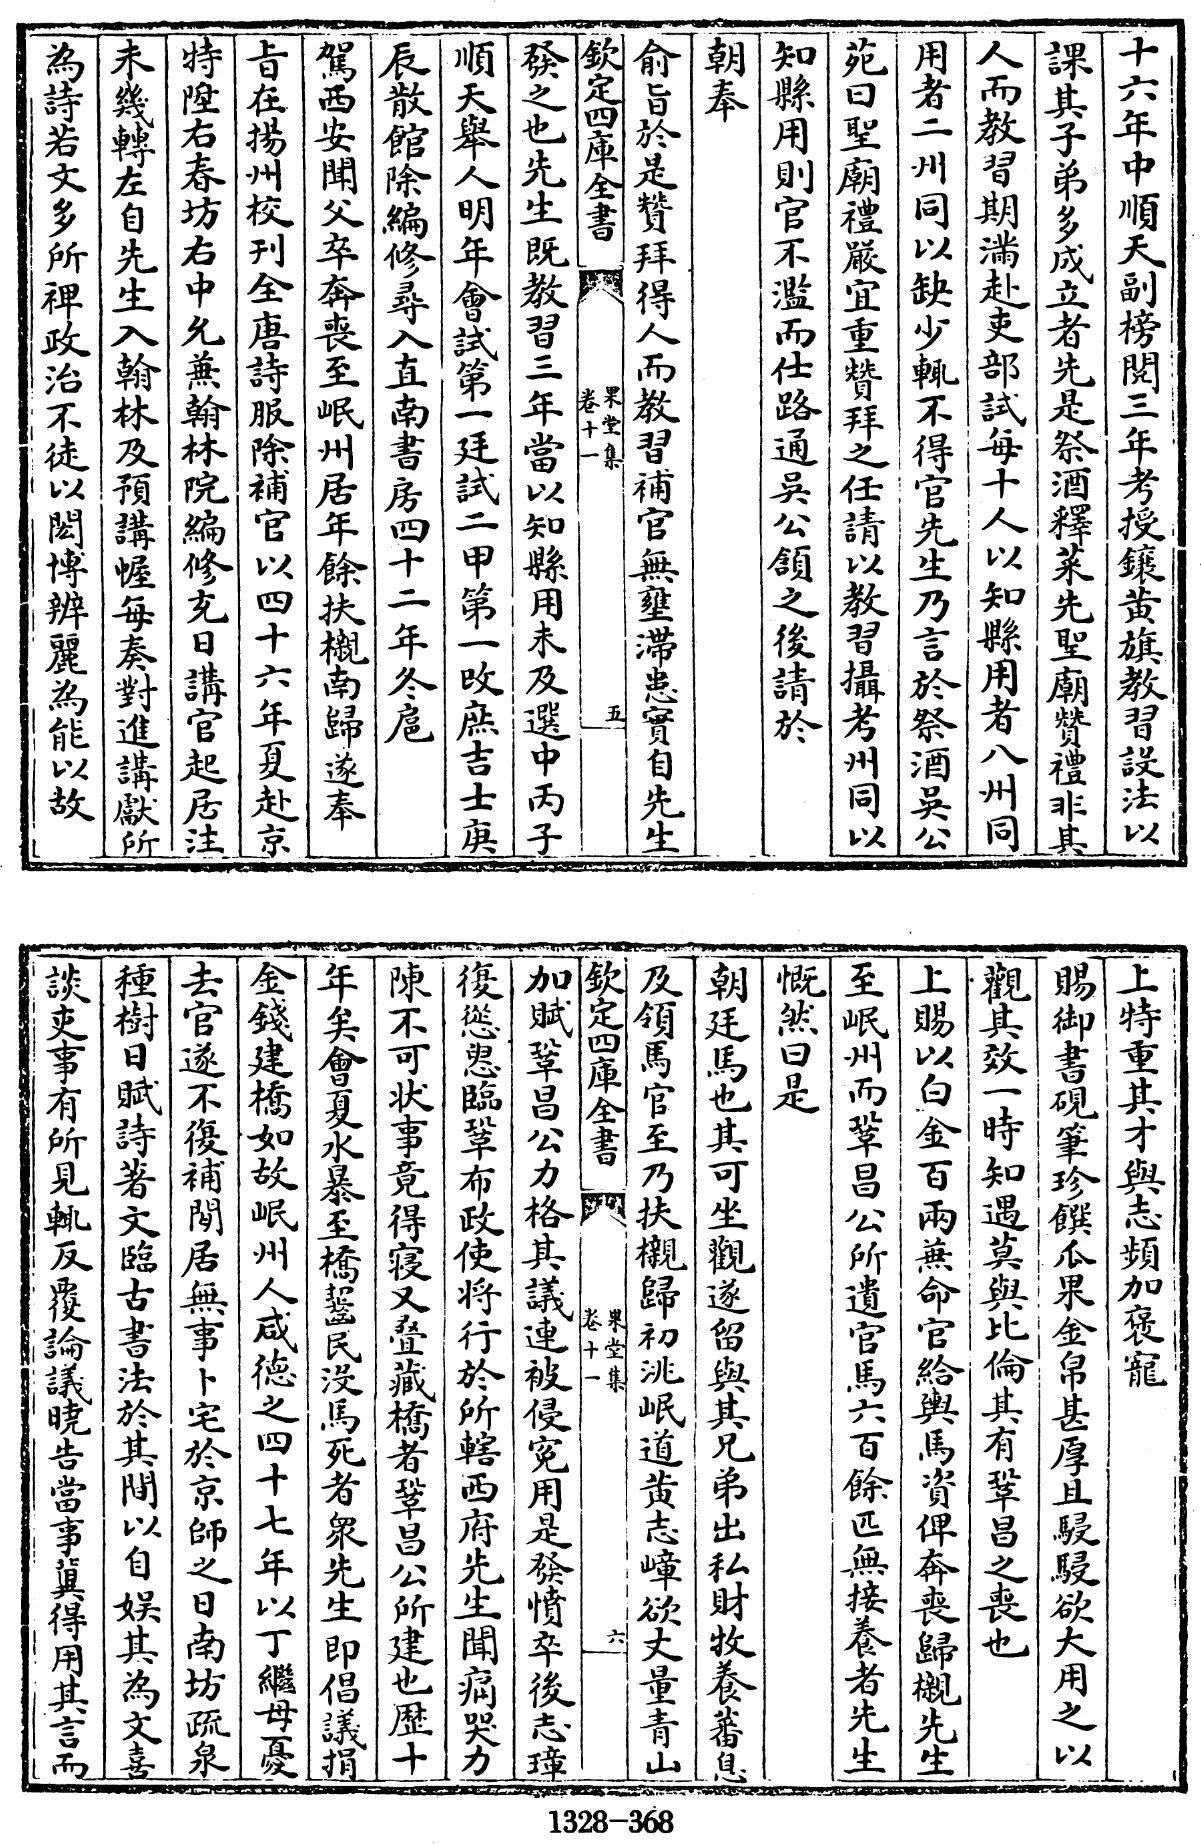 十六年中順天副榜閱三年考授鑲黃旗教習設法以
課其子弟多成立者先是祭酒釋菜先聖廟贊禮非其
人而教習期滿赴吏部試每十人以知縣用者八州同
用者二州同以缺少輒不得官先生乃言於祭酒吳公
苑曰聖廟禮嚴宜重贊拜之任請以教習攝考州同以
知縣用則官不濫而仕路通吳公頷之後請於
朝奉
俞旨於是贊拜得人而教習補官無壅滯患實自先生
欽定四庫全書
果堂集
卷十一
五
發之也先生既教習三年當以知縣用未及選中丙子
順天舉人明年會試第一廷試二甲第一改庶吉士庚
辰散館除編修尋入直南書房四十二年冬扈
駕西安聞父卒奔喪至岷州居年餘扶櫬南歸遂奉
旨在揚州校刊全唐詩服除補官以四十六年夏赴京
特陞右春坊右中允兼翰林院編修充日講官起居注
未幾轉左自先生入翰林及預講幄每奏對進講獻所
為詩若文多所裨政治不徒以閎博辨麗為能以故
上特重其才與志頻加褒寵
賜御書硯筆珍饌瓜果金帛甚厚且駸駸欲大用之以
觀其效一時知遇莫與比倫其有鞏昌之喪也
上賜以白金百兩兼命官給輿馬資俾奔喪歸櫬先生
至岷州而鞏昌公所遺官馬六百餘匹無接養者先生
慨然曰是
朝廷馬也其可坐觀遂留與其兄弟出私財牧養蕃息
及領馬官至乃扶櫬歸初洮岷道黃志嶂欲丈量青山
欽定四庫全書
果堂集
卷十一
六
加賦鞏昌公力格其議連被侵冤用是發憤卒後志璋
復慫恿臨鞏布政使將行於所轄西府先生聞痛哭力
陳不可狀事竟得寢又疊藏橋者鞏昌公所建也歷十
年矣會夏水暴至橋齧民沒馬死者衆先生即倡議捐
金錢建橋如故岷州人咸德之四十七年以丁繼母憂
去官遂不復補閒居無事卜宅於京師之日南坊疏泉
種樹日賦詩著文臨古書法於其間以自娛其為文喜
談吏事有所見輒反覆論議曉告當事冀得用其言而
1328-368